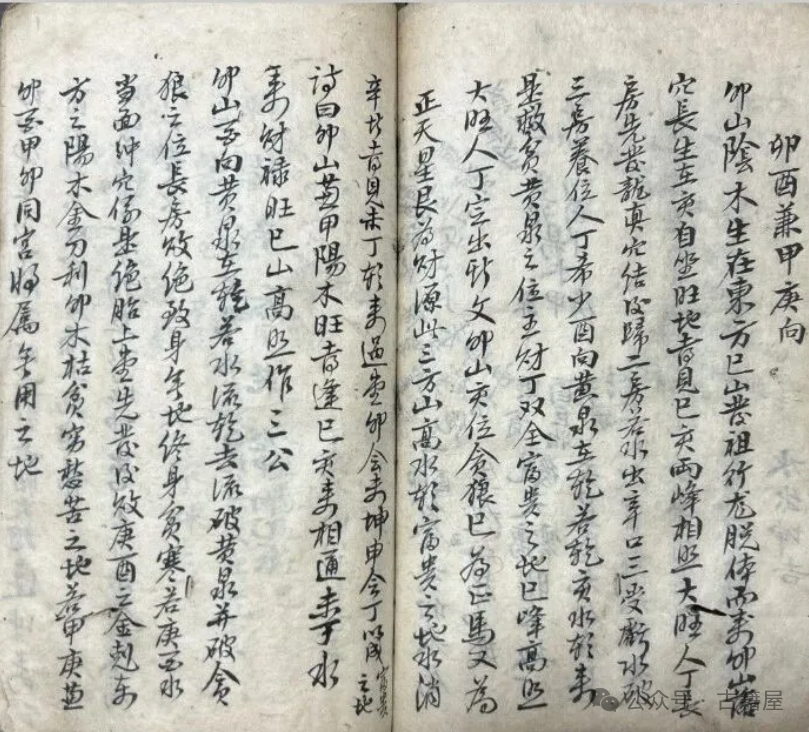 卯酉兼甲庚向
卯山陰木生在東方巳山發祖行龙脱体而来卯山
穴長生在亥自坐旺地喜見巳亥兩峰相照大旺人丁長
房先發龍真穴結後歸二房若水出辛口三受虧水破
三房養位人丁希少酉向黄泉在乾若乾亥水朝来
是救貧黄泉之位主财丁双全富贵之地巳峰高照
大旺人丁定出新文卯山亥位貪狼巳為馬又為
正天星艮為财源此三方山高水朝富贵之地水消
辛 喜見未丁朝来過堂卯会未坤申会丁 富贵之地
詩曰卯山兼甲陽木旺喜逢巳亥来相通未丁水
来财禄旺巳山高照作三公
卯山酉向黄泉在乾若水流乾去流破黄泉并破貪
狼之位長房敗绝致身無地终身貧寒若庚酉水
当面冲穴係是绝胎上堂先發後敗庚酉之金剋东
方之陽木金刀利卯木枯貧穷愁苦之地若甲庚兼
卯酉甲卯同宫 屬無用之地
公众号·古籍屋